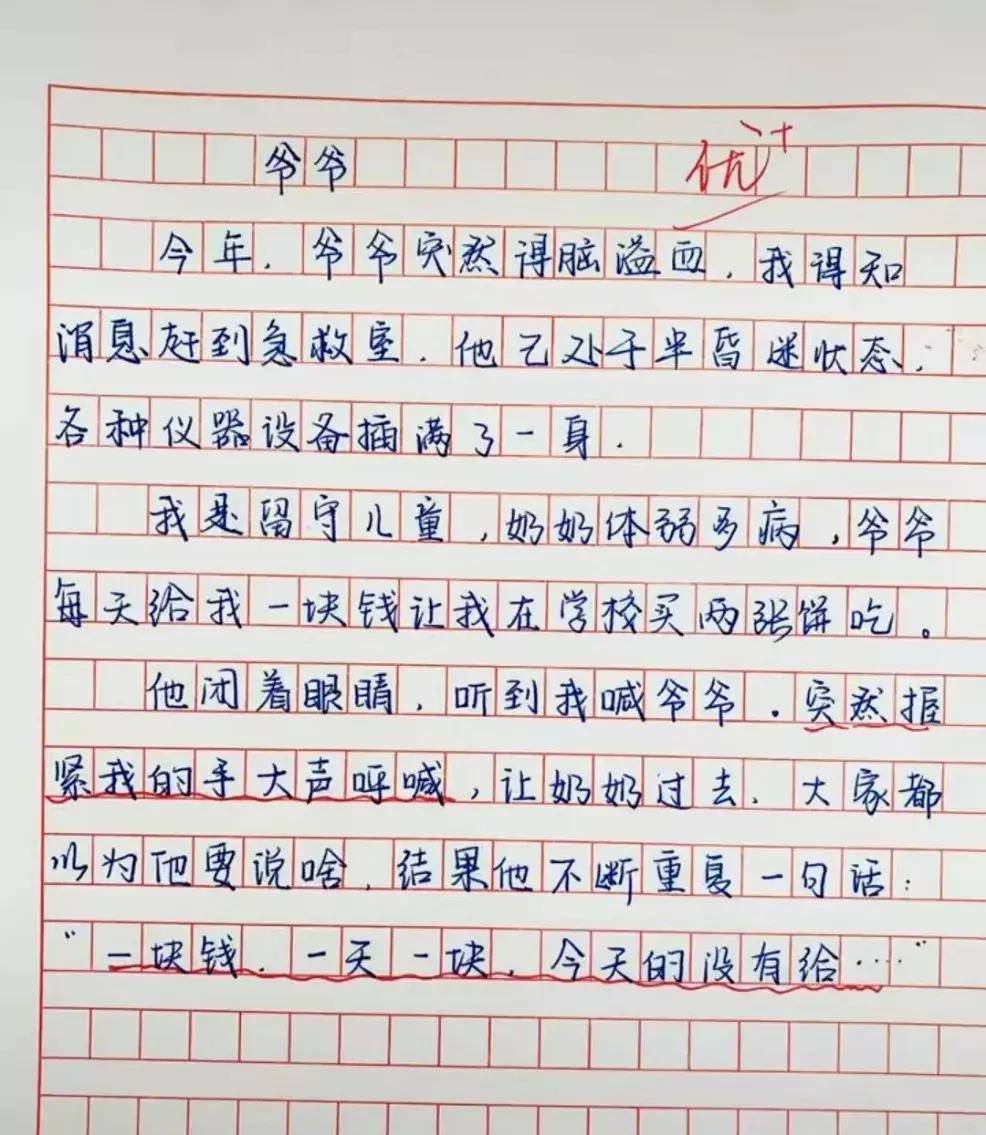 爷爷
优+
今年，爷爷突然得脑溢血，我得知
消息赶到急救室，他已处于半昏迷状态，
各种仪器设备插满了一身．
我是留守儿童，奶奶体弱多病，爷爷
每天给我一块钱让我在学校买两张饼吃。
他闭着眼睛，听到我喊爷爷．突然握
紧我的手大声呼喊，让奶奶过去．大家都
以为他要说啥，结果他不断重复一句话：
“一块钱．一天一块，今天的没有给……”